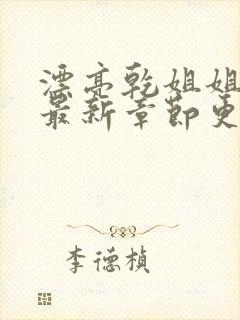 漂亮乾姐姐
最新章节更
李德楨